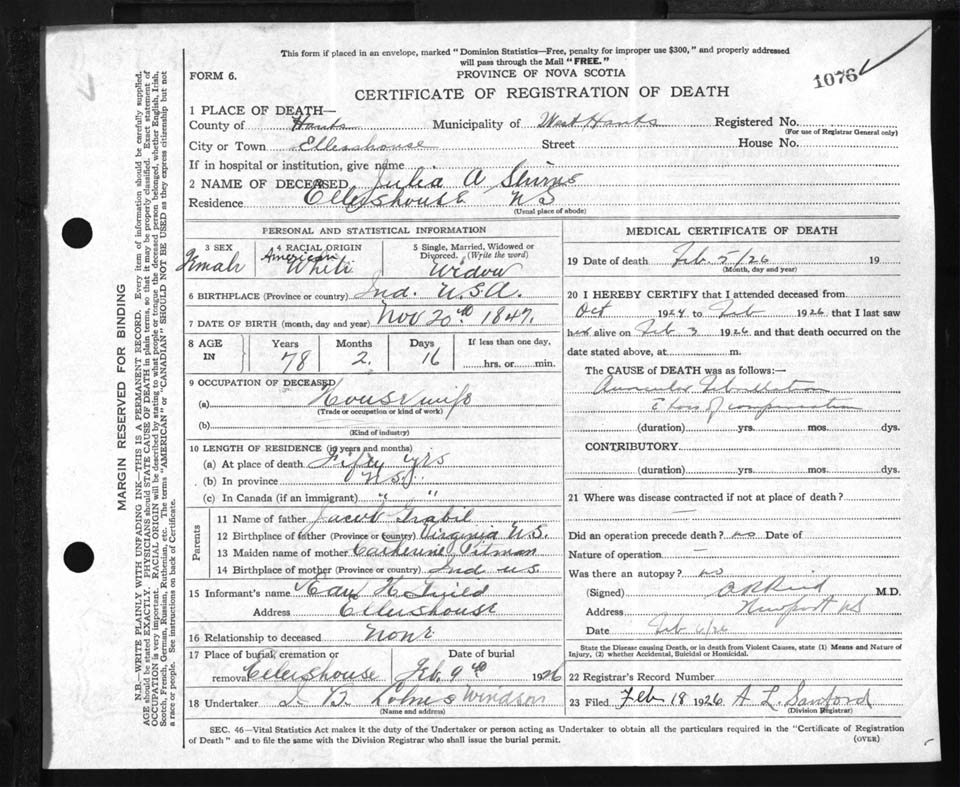 This form if placed in an envelope, marked "Dominion Statistics—Free, penalty for improper use $300," and properly addressed
will pass through the Mail "FREE."
FORM 6.
PROVINCE OF NOVA SCOTIA
1076
CERTIFICATE OF REGISTRATION OF DEATH
1 PLACE OF DEATH—
County of Hants Municipality of West Hants Registered No.
(For use of Registrar General only)
City or Town Ellershouse Street House No.
If in hospital or institution, give name
2 NAME OF DECEASED Julia A
Residence Ellershouse NS
(Usual place of abode)
PERSONAL AND STATISTICAL INFORMATION
3 SEX
Female
4 RACIAL ORIGIN
American
White
5 Single, Married, Widowed or
Divorced. (Write the word)
Widow
6 BIRTHPLACE (Province or country) Ind. U.S.A.
7 DATE OF BIRTH (month, day and year) Nov 20th 1847.
8 AGE
IN
Years
78
Months
2
Days
16
If less than one day,
hrs. or min.
9 OCCUPATION OF DECEASED
(a) Housewife
(Trade or occupation or kind of work)
(b)
(Kind of industry)
10 LENGTH OF RESIDENCE (in years and months)
(a) At place of death Fifty yrs
(b) In province "
(c) In Canada (if an immigrant) " "
Parents
11 Name of father Jacob Grabil
12 Birthplace of father (Province or country) Virginia U.S.
13 Maiden name of mother Catherine Pitman
14 Birthplace of mother (Province or country) Ind US
15 Informant's name
Address Ellershouse
16 Relationship to deceased None
17 Place of burial, cremation or
removal Ellershouse
Date of burial
Feb. 9th 1926
18 Undertaker Windsor
(Name and address)
MEDICAL CERTIFICATE OF DEATH
19 Date of death Feb. 5/26 19
(Month, day and year)
20 I HEREBY CERTIFY that I attended deceased from
Oct 1924 to Feb 1926, that I last saw
her alive on Feb 3 1926 and that death occurred on
date stated above, at m.
The CAUSE of DEATH was as follows:—
Auricular Fibrillation
loss of compensation
(duration) yrs. mos. dys.
CONTRIBUTORY
(duration) yrs. mos. dys.
21 Where was disease contracted if not at place of death?
—
Did an operation precede death? no Date of
Nature of operation —
Was there an autopsy? no
(Signed) Reid M.D.
Address Newport NS
Date Feb 6/26
State the Disease causing Death, or in death from Violent Causes, state (1) Means and Nature of
Injury, (2) whether Accidental, Suicidal or Homicidal.
22 Registrar's Record Number
23 Filed Feb 18 1926 A L Sanford
(Division Registrar)
SEC. 46—Vital Statistics Act makes it the duty of the Undertaker or person acting as Undertaker to obtain all the particulars required in the "Certificate of Registration
of Death" and to file the same with the Division Registrar who shall issue the burial permit.
(OVER)
MARGIN RESERVED FOR BINDING
N.B.—WRITE PLAINLY WITH UNFADING INK—THIS IS A PERMANENT RECORD. Every item of information should be carefully supplied.
AGE should be stated EXACTLY. PHYSICIANS should STATE CAUSE OF DEATH in plain terms, so that it may be properly classified. Exact statement of
OCCUPATION is very important. RACIAL ORIGIN will be described by stating to what people or tongue the deceased person belonged, whether English, Irish,
Scotch, French, German, Russian, Ruthenian, etc. The terms "AMERICAN" or "CANADIAN" SHOULD NOT BE USED as they express citizenship but not
a race or people. See instructions on back of Certificate.